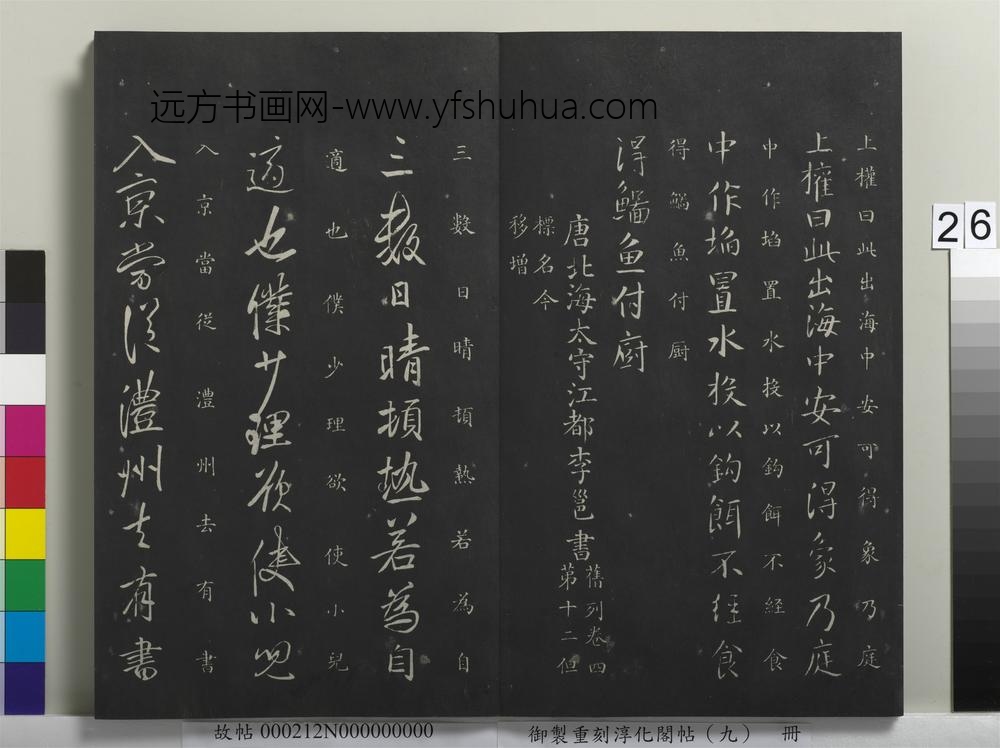 远方书画网-www.yfshuhua.com
上權曰此出海中安可得象乃庭
上權曰此出海中安可得象乃庭
中作埳置水投以鈎餌不経食
中作埳置水投以鈎餌不經食
得鯔魚付厨
得鯔魚付廚
唐北海太守江都李邕書
舊列卷四
第十二但
標名今
移增
三數日晴頓熱若為自
三數日晴頓熱若為自
適也僕少理欲使小兒
適也僕少理欲使小兒
入京當從澧州去有書
入京當從澧州去有書
26
故帖 000212N000000000
御製重刻淳化閣帖（九） 冊